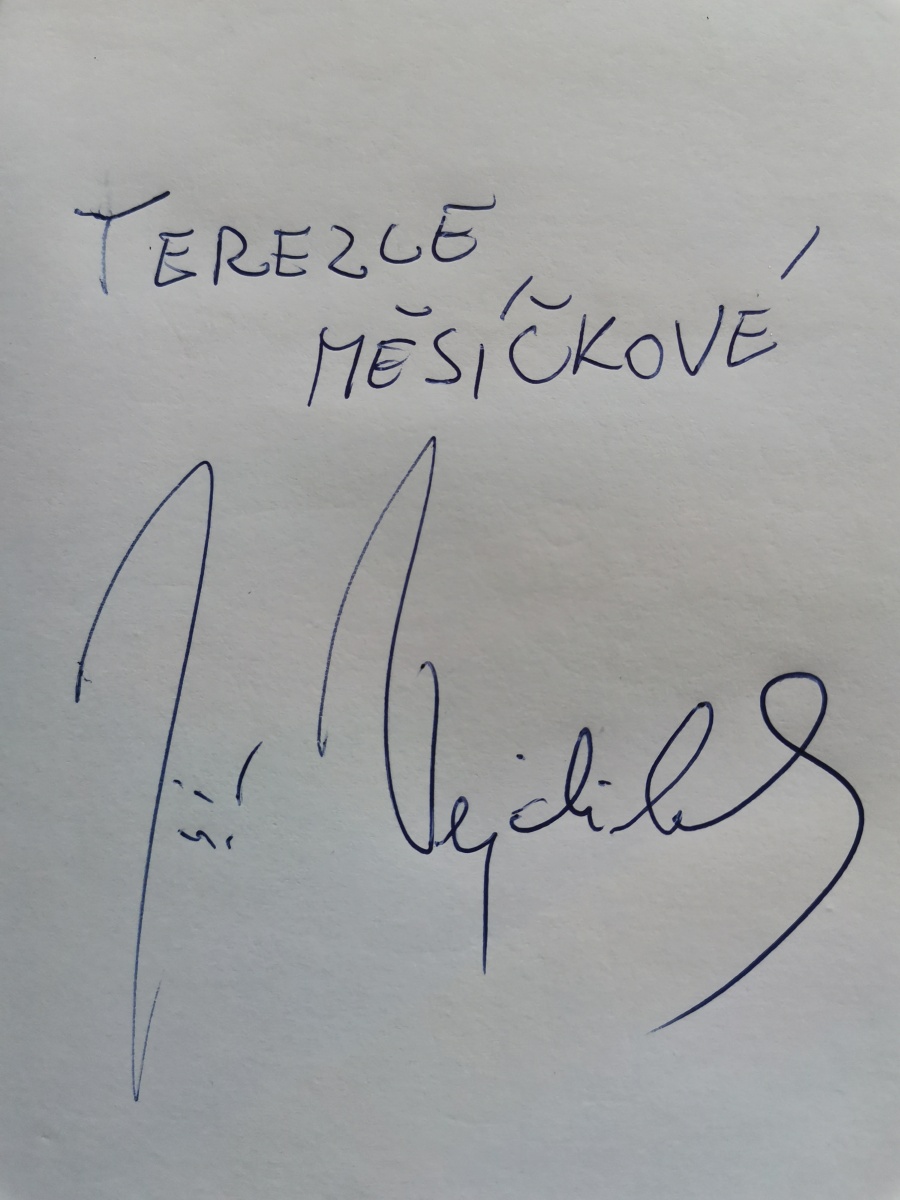 TEREZCE
MĚSÍČKOVÉ
Jiří Vejdělek